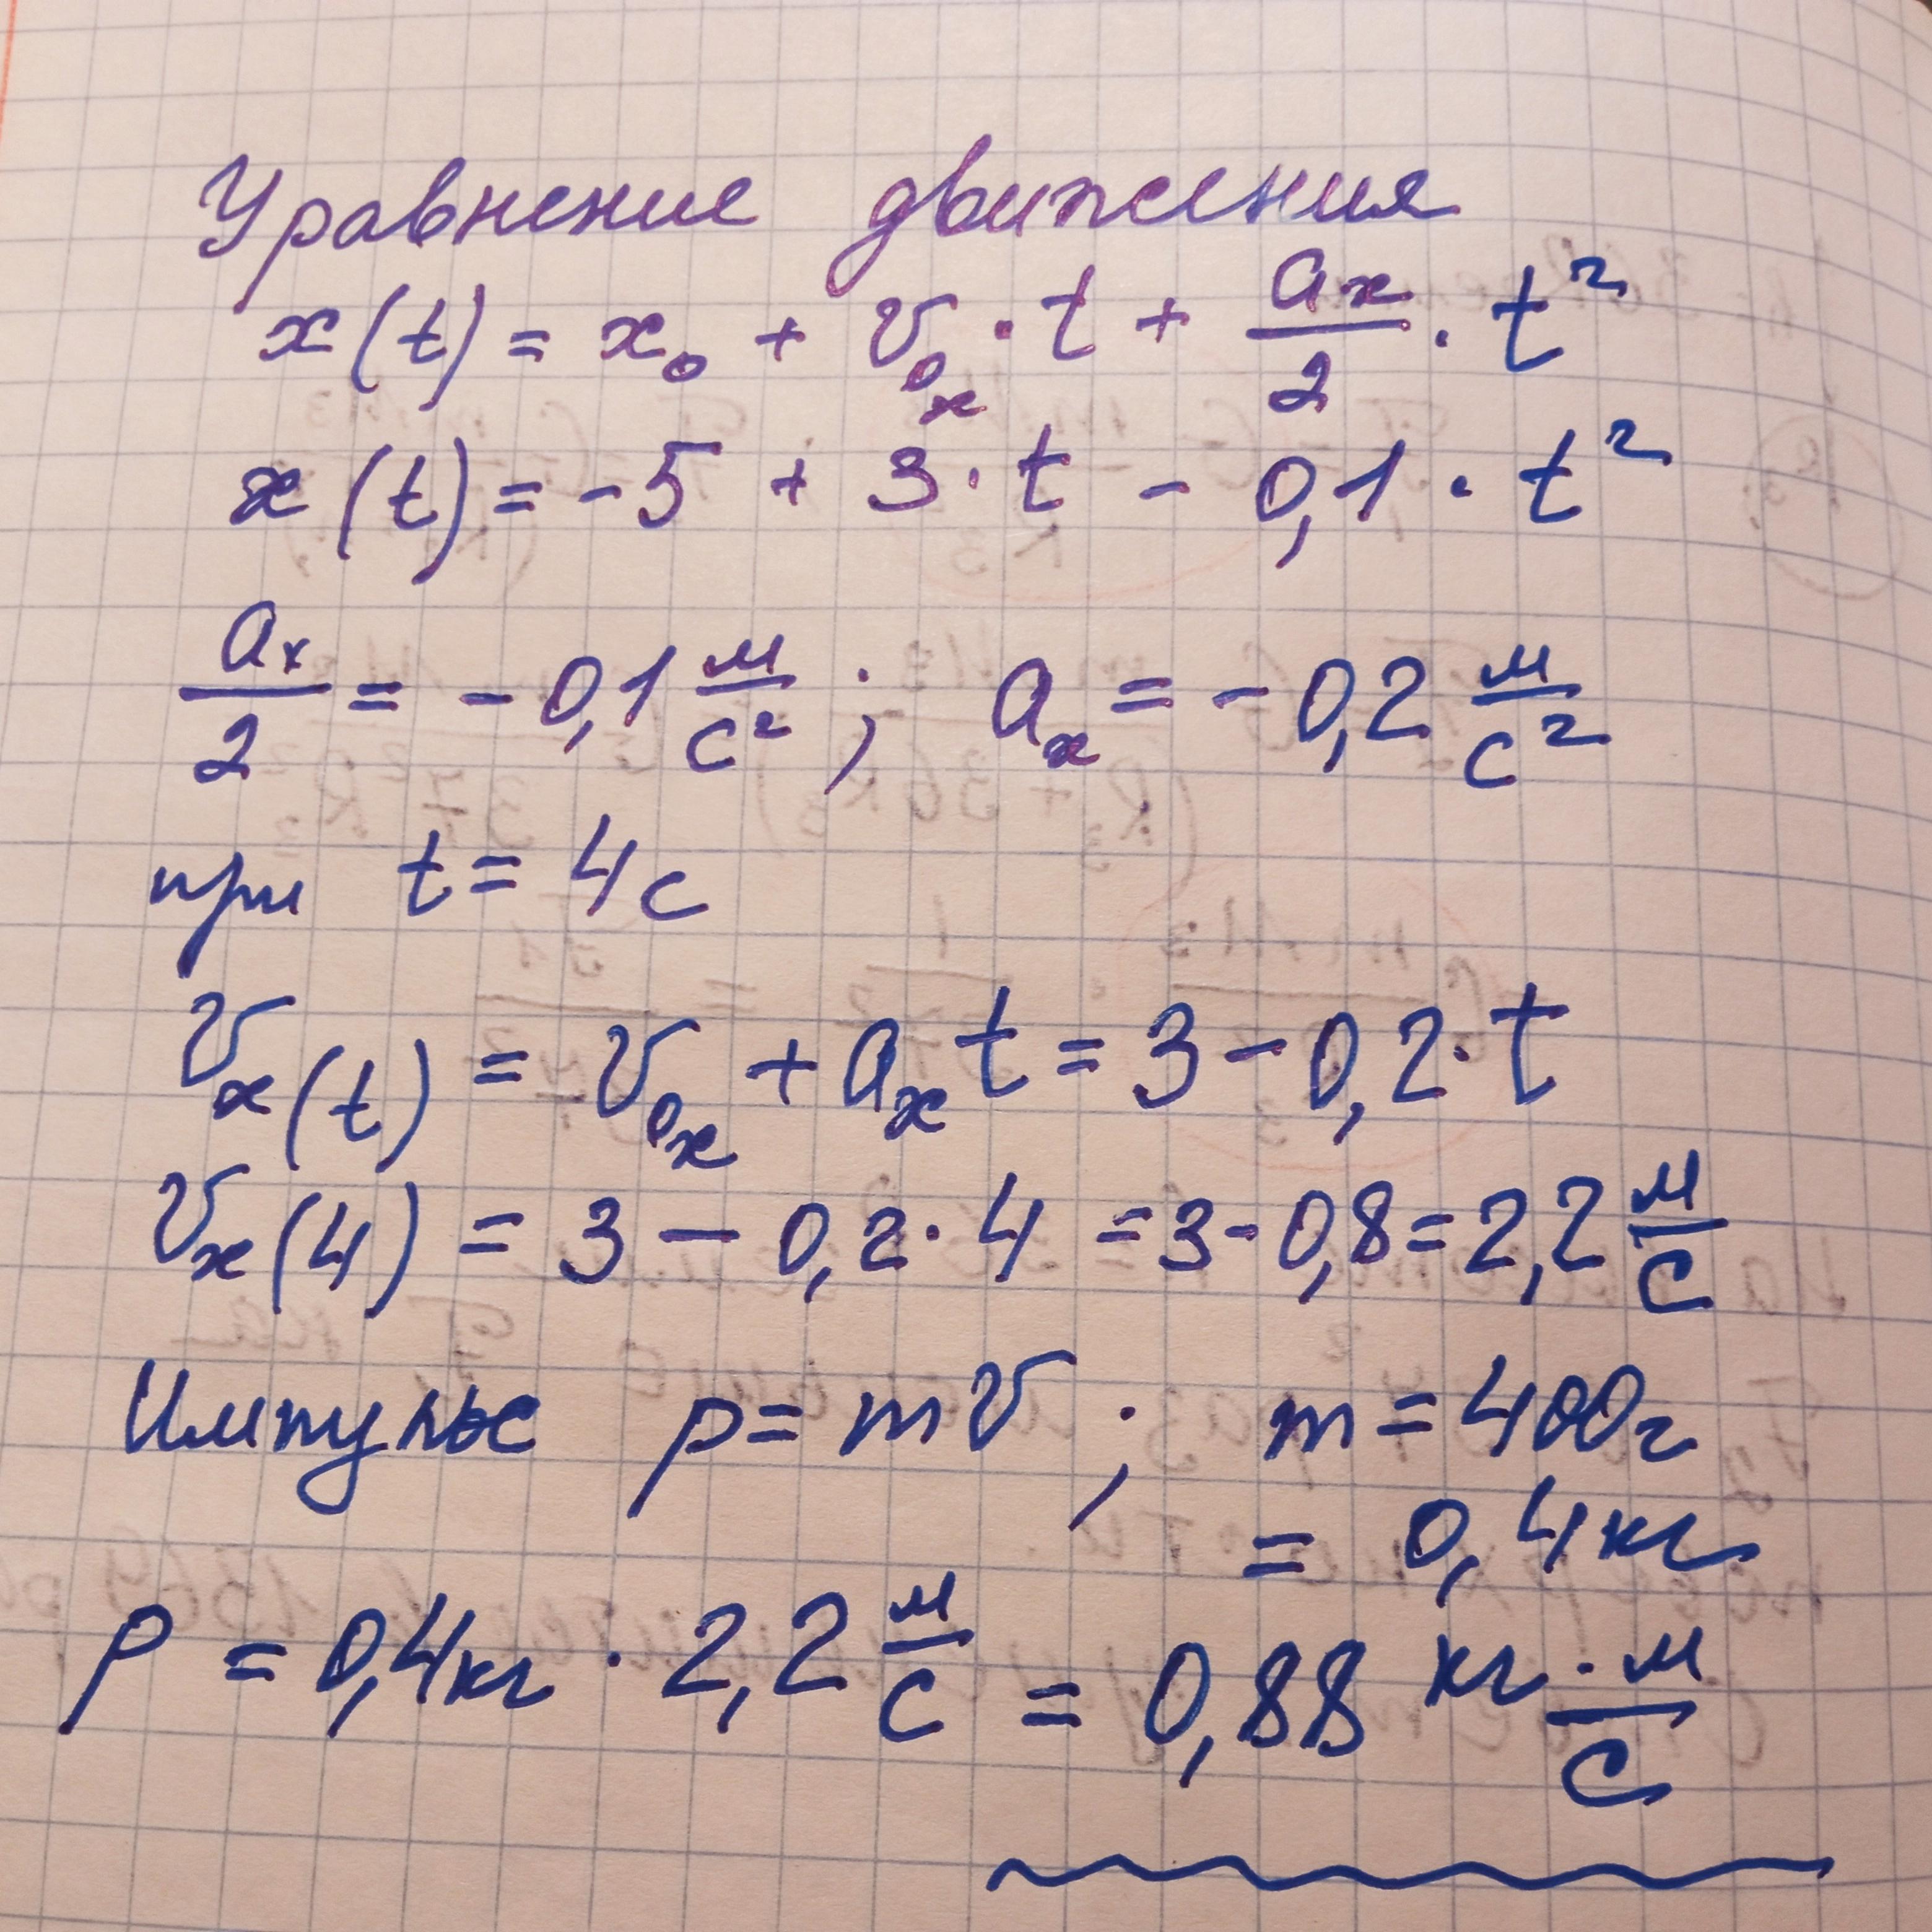 Уравнение движения
x(t) = x₀ + v₀ₓ · t + aₓ/2 · t²
x(t) = -5 + 3 · t - 0,1 · t²
aₓ/2 = -0,1 м/с² ; aₓ = -0,2 м/с²
при t = 4с
vₓ(t) = v₀ₓ + aₓt = 3 - 0,2 · t
vₓ(4) = 3 - 0,2 · 4 = 3 - 0,8 = 2,2 м/с
Импульс p = mv ; m = 400г
= 0,4кг
p = 0,4кг · 2,2 м/с = 0,88 кг · м/с